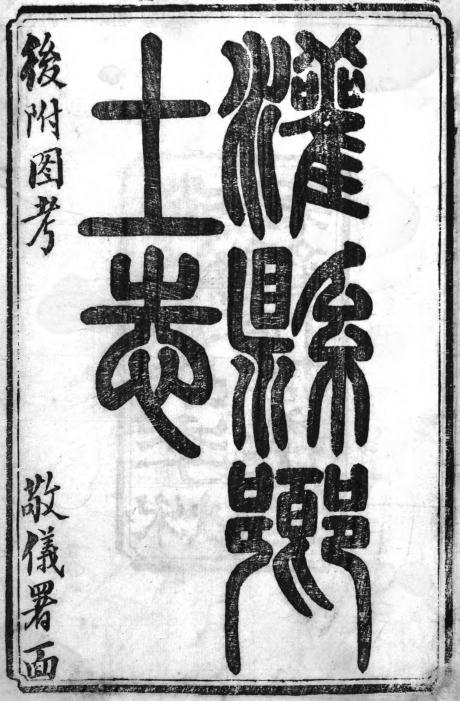 灌縣鄉
土志
後附图考
敬儀署面